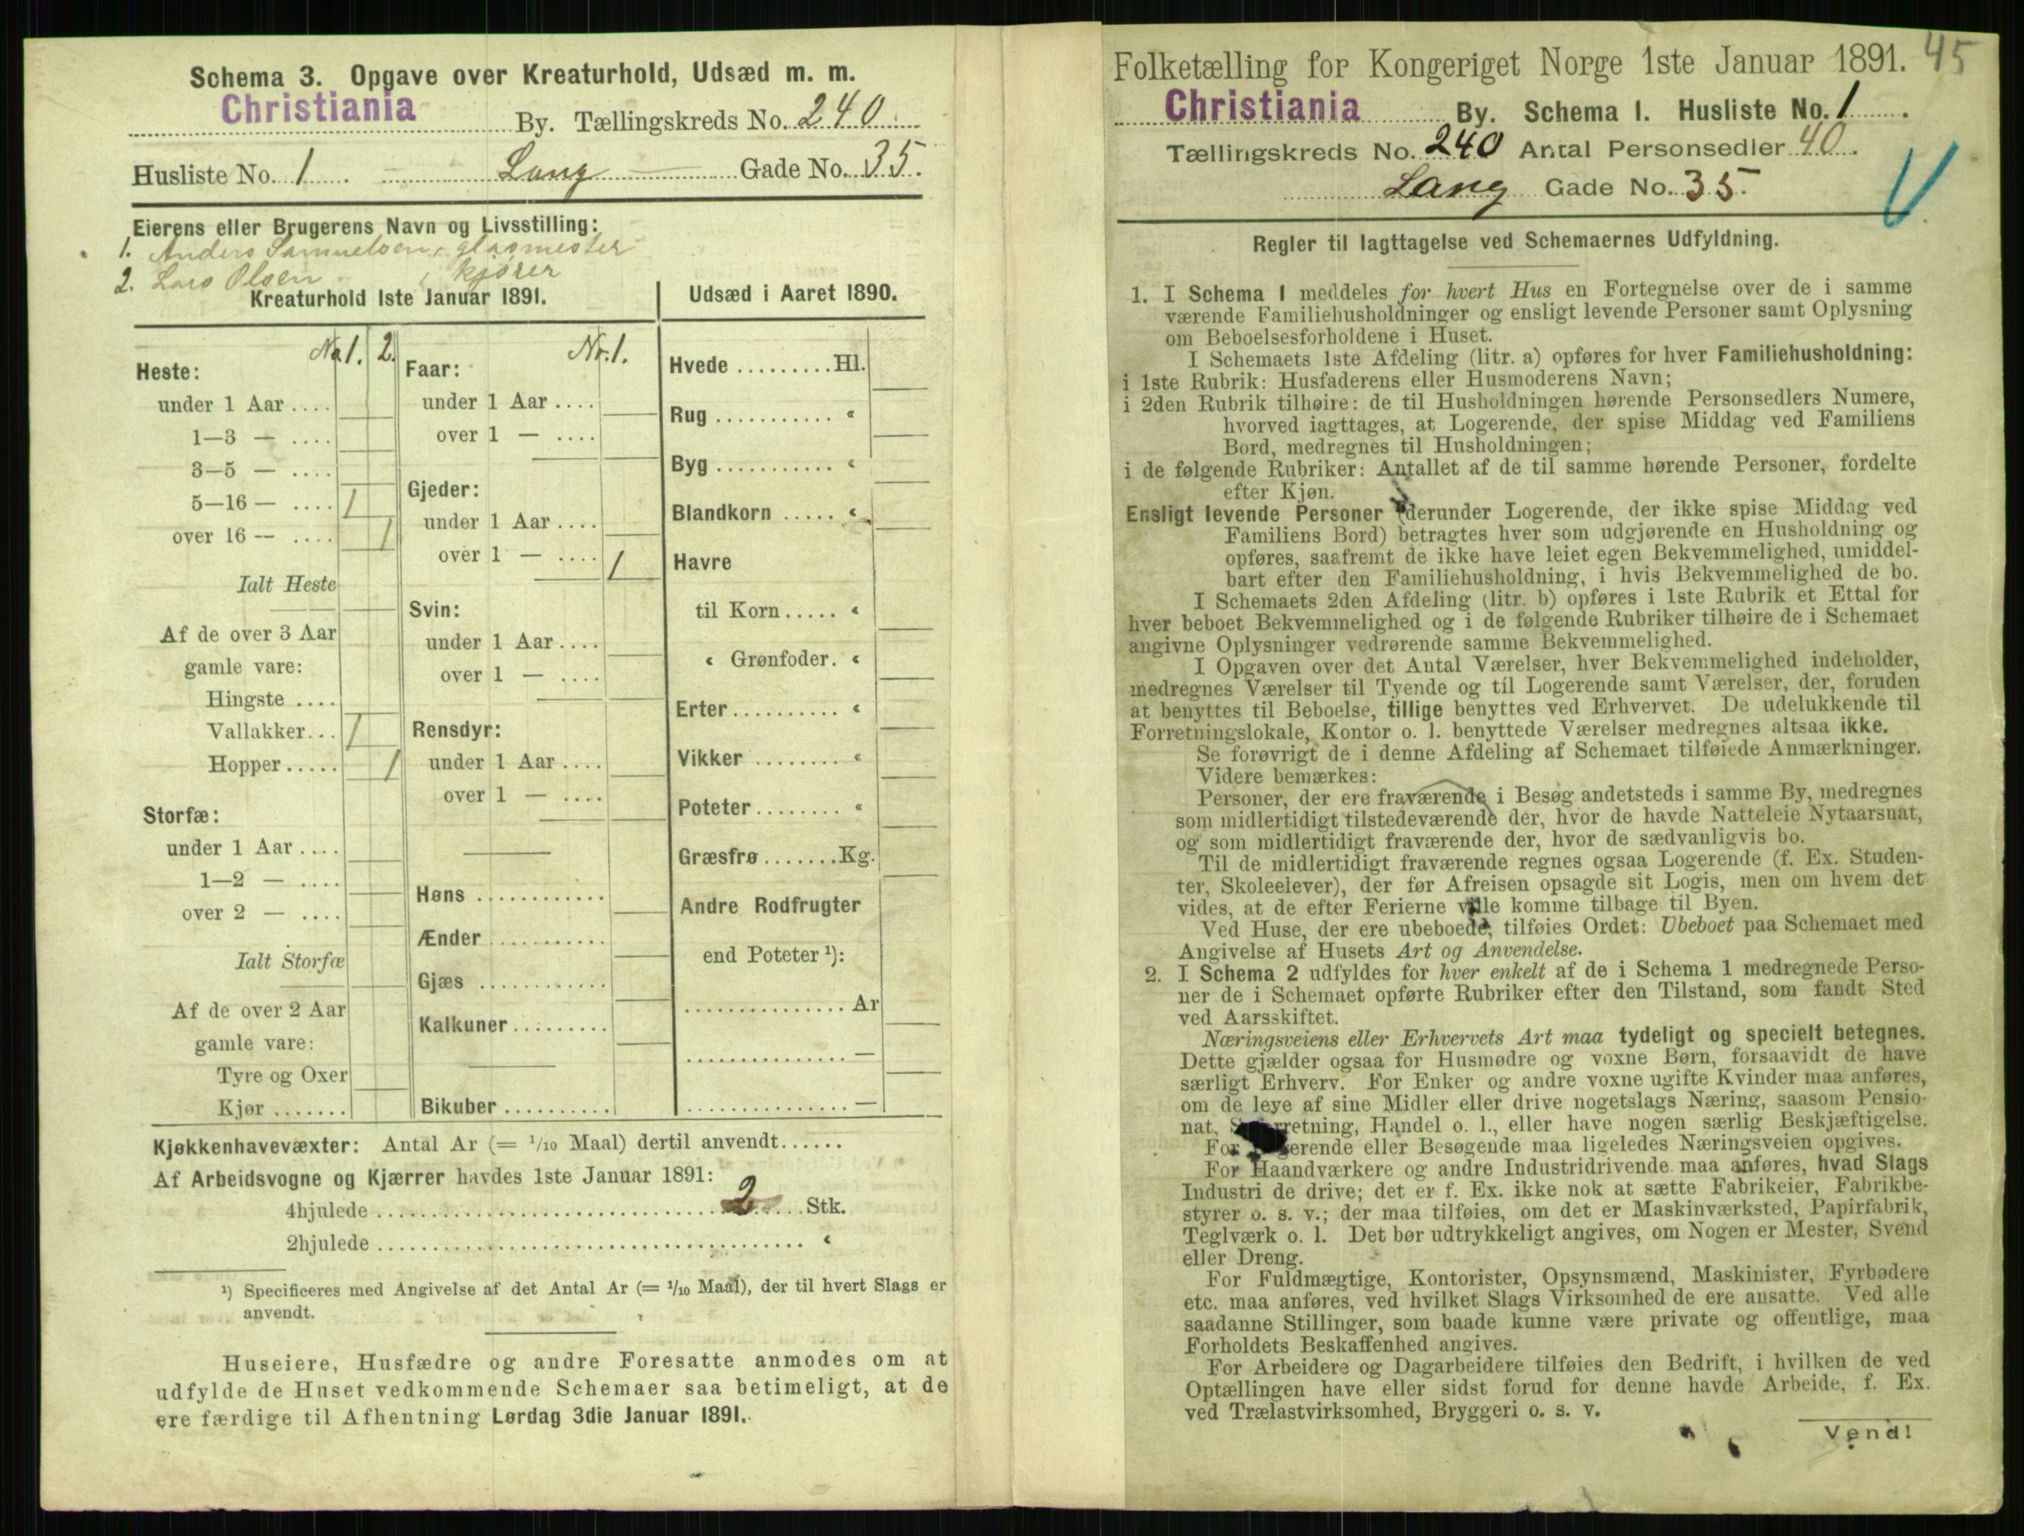 Schema 3. Opgave over Kreaturhold, Udsæd m. m.
Christiania By. Tællingskreds No. 240
Husliste No. 1 Lang Gade No. 35.
Eierens eller Brugerens Navn og Livsstilling:
1. Anders Samuelsen, glasmester
2. Lars Olsen, kjører
Kreaturhold 1ste Januar 1891.
No 1. 2.
Heste:
under 1 Aar ....
1—3 — ....
3—5 — ....
5—16 — .... 1
over 16 — .... 1
Ialt Heste
Af de over 3 Aar
gamle vare:
Hingste ....
Vallakker... 1
Hopper..... 1
Storfæ:
under 1 Aar ....
1—2 — ....
over 2 — ....
Ialt Storfæ
Af de over 2 Aar
gamle vare:
Tyre og Oxer
Kjør .......
Nr. 1.
Faar:
under 1 Aar ....
over 1 — ....
Gjeder:
under 1 Aar ....
over 1 — .... 1
Svin:
under 1 Aar....
over 1 — ....
Rensdyr:
under 1 Aar ....
over 1 — ....
Høns ............
Ænder ...........
Gjæs ............
Kalkuner.........
Bikuber..........
Udsæd i Aaret 1890.
Hvede .........Hl.
Rug ........... «
Byg ........... «
Blandkorn ..... «
Havre
til Korn ..... «
« Grønfoder. «
Erter.......... «
Vikker ........ «
Poteter........ «
Græsfrø .......Kg.
Andre Rodfrugter
end Poteter ¹):
............... Ar
............... —
............... —
Kjøkkenhavevæxter: Antal Ar (= 1/10 Maal) dertil anvendt......
Af Arbeidsvogne og Kjærrer havdes 1ste Januar 1891:
4hjulede .............................. 2 ..... Stk.
2hjulede ..................................... «
¹) Specificeres med Angivelse af det Antal Ar (= 1/10 Maal), der til hvert Slags er
anvendt.
Huseiere, Husfædre og andre Foresatte anmodes om at
udfylde de Huset vedkommende Schemaer saa betimeligt, at de
ere færdige til Afhentning Lørdag 3die Januar 1891.
Folketælling for Kongeriget Norge 1ste Januar 1891. 45
Christiania By. Schema I. Husliste No. 1.
Tællingskreds No. 240 Antal Personsedler 40.
Lang Gade No. 35.
Regler til Iagttagelse ved Schemaernes Udfyldning.
1. I Schema I meddeles for hvert Hus en Fortegnelse over de i samme
værende Familiehusholdninger og ensligt levende Personer samt Oplysning
om Beboelsesforholdene i Huset.
I Schemaets 1ste Afdeling (litr. a) opføres for hver Familiehusholdning:
i 1ste Rubrik: Husfaderens eller Husmoderens Navn;
i 2den Rubrik tilhøire: de til Husholdningen hørende Personsedlers Numere,
hvorved iagttages, at Logerende, der spise Middag ved Familiens
Bord, medregnes til Husholdningen;
i de følgende Rubriker: Antallet af de til samme hørende Personer, fordelte
efter Kjøn.
Ensligt levende Personer (derunder Logerende, der ikke spise Middag ved
Familiens Bord) betragtes hver som udgjørende en Husholdning og
opføres, saafremt de ikke have leiet egen Bekvemmelighed, umiddel-
bart efter den Familiehusholdning, i hvis Bekvemmelighed de bo.
I Schemaets 2den Afdeling (litr. b) opføres i 1ste Rubrik et Ettal for
hver beboet Bekvemmelighed og i de følgende Rubriker tilhøire de i Schemaet
angivne Oplysninger vedrørende samme Bekvemmelighed.
I Opgaven over det Antal Værelser, hver Bekvemmelighed indeholder,
medregnes Værelser til Tyende og til Logerende samt Værelser, der, foruden
at benyttes til Beboelse, tillige benyttes ved Erhvervet. De udelukkende til
Forretningslokale, Kontor o. l. benyttede Værelser medregnes altsaa ikke.
Se forøvrigt de i denne Afdeling af Schemaet tilføiede Anmærkninger.
Videre bemærkes:
Personer, der ere fraværende i Besøg andetsteds i samme By, medregnes
som midlertidigt tilstedeværende der, hvor de havde Natteleie Nytaarsnat,
og som midlertidigt fraværende der, hvor de sædvanligvis bo.
Til de midlertidigt fraværende regnes ogsaa Logerende (f. Ex. Studen-
ter, Skoleelever), der før Afreisen opsagde sit Logis, men om hvem det
vides, at de efter Ferierne ville komme tilbage til Byen.
Ved Huse, der ere ubeboede, tilføies Ordet: Ubeboet paa Schemaet med
Angivelse af Husets Art og Anvendelse.
2. I Schema 2 udfyldes for hver enkelt af de i Schema 1 medregnede Perso-
ner de i Schemaet opførte Rubriker efter den Tilstand, som fandt Sted
ved Aarsskiftet.
Næringsveiens eller Erhvervets Art maa tydeligt og specielt betegnes.
Dette gjælder ogsaa for Husmødre og voxne Børn, forsaavidt de have
særligt Erhverv. For Enker og andre voxne ugifte Kvinder maa anføres,
om de leve af sine Midler eller drive nogetslags Næring, saasom Pensio-
nat, Syforretning, Handel o. l., eller have nogen særlig Beskjæftigelse.
For Logerende eller Besøgende maa ligeledes Næringsveien opgives.
For Haandværkere og andre Industridrivende maa anføres, hvad Slags
Industri de drive; det er f. Ex. ikke nok at sætte Fabrikeier, Fabrikbe-
styrer o. s. v.; der maa tilføies, om det er Maskinværksted, Papirfabrik,
Teglværk o. l. Det bør udtrykkeligt angives, om Nogen er Mester, Svend
eller Dreng.
For Fuldmægtige, Kontorister, Opsynsmænd, Maskinister, Fyrbødere
etc. maa anføres, ved hvilket Slags Virksomhed de ere ansatte. Ved alle
saadanne Stillinger, som baade kunne være private og offentlige, maa
Forholdets Beskaffenhed angives.
For Arbeidere og Dagarbeidere tilføies den Bedrift, i hvilken de ved
Optællingen have eller sidst forud for denne havde Arbeide, f. Ex.
ved Trælastvirksomhed, Bryggeri o. s. v.
Vend!